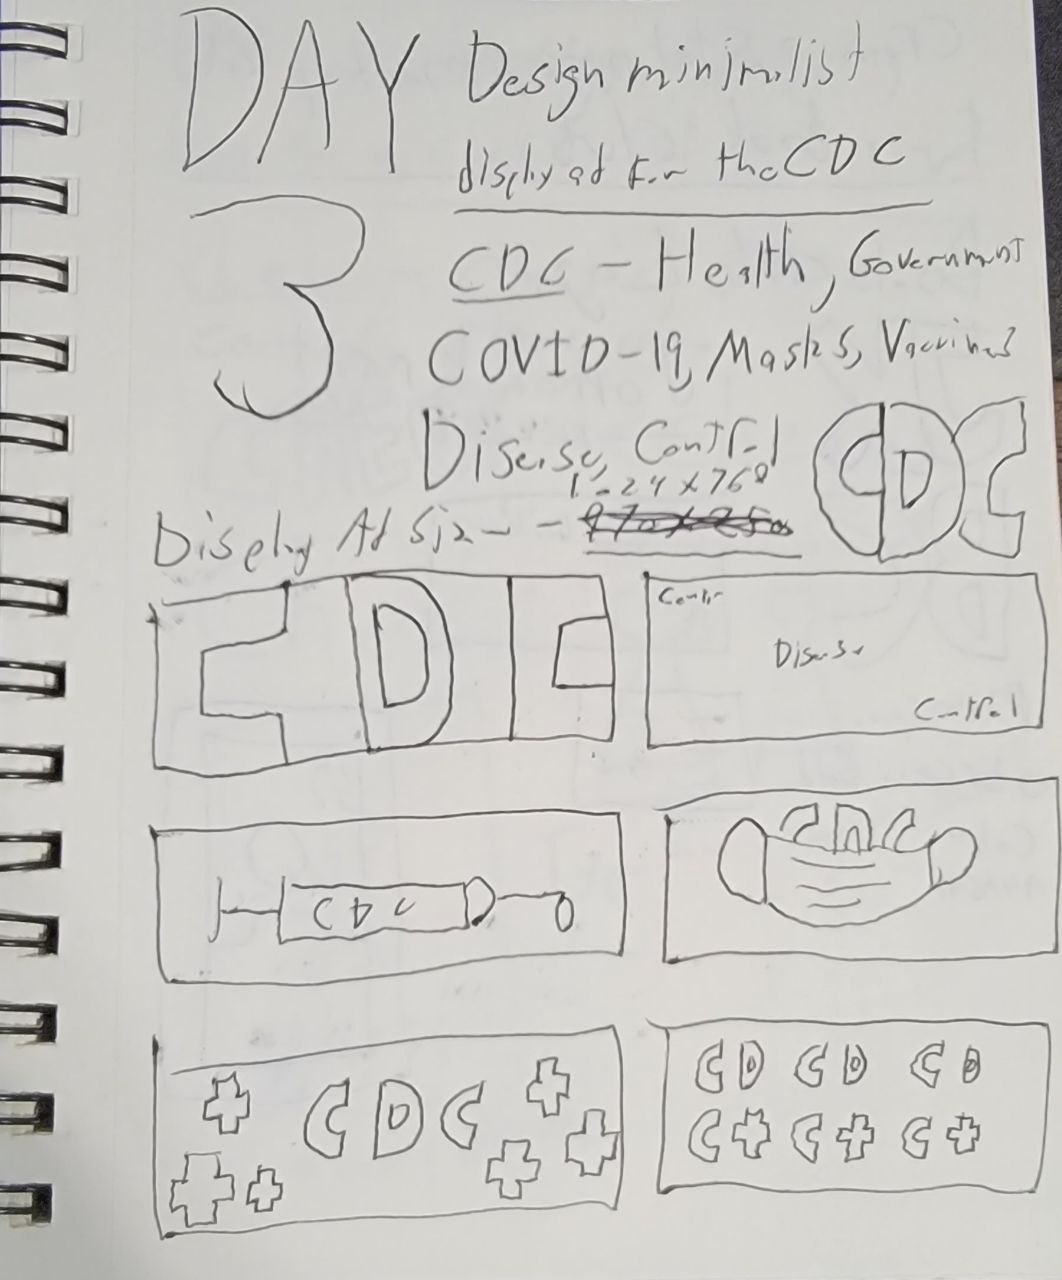 DAY
3
Design minimilist
display ad for the CDC
CDC - Health, Government
COVID-19, Masks, Vaccines
Disease, Control
CDC
1024 x 768
Display Ad Size - 970x250
CDC
Center
Disease
Control
CDC
CDC
CDC
CD CD CD
C C C